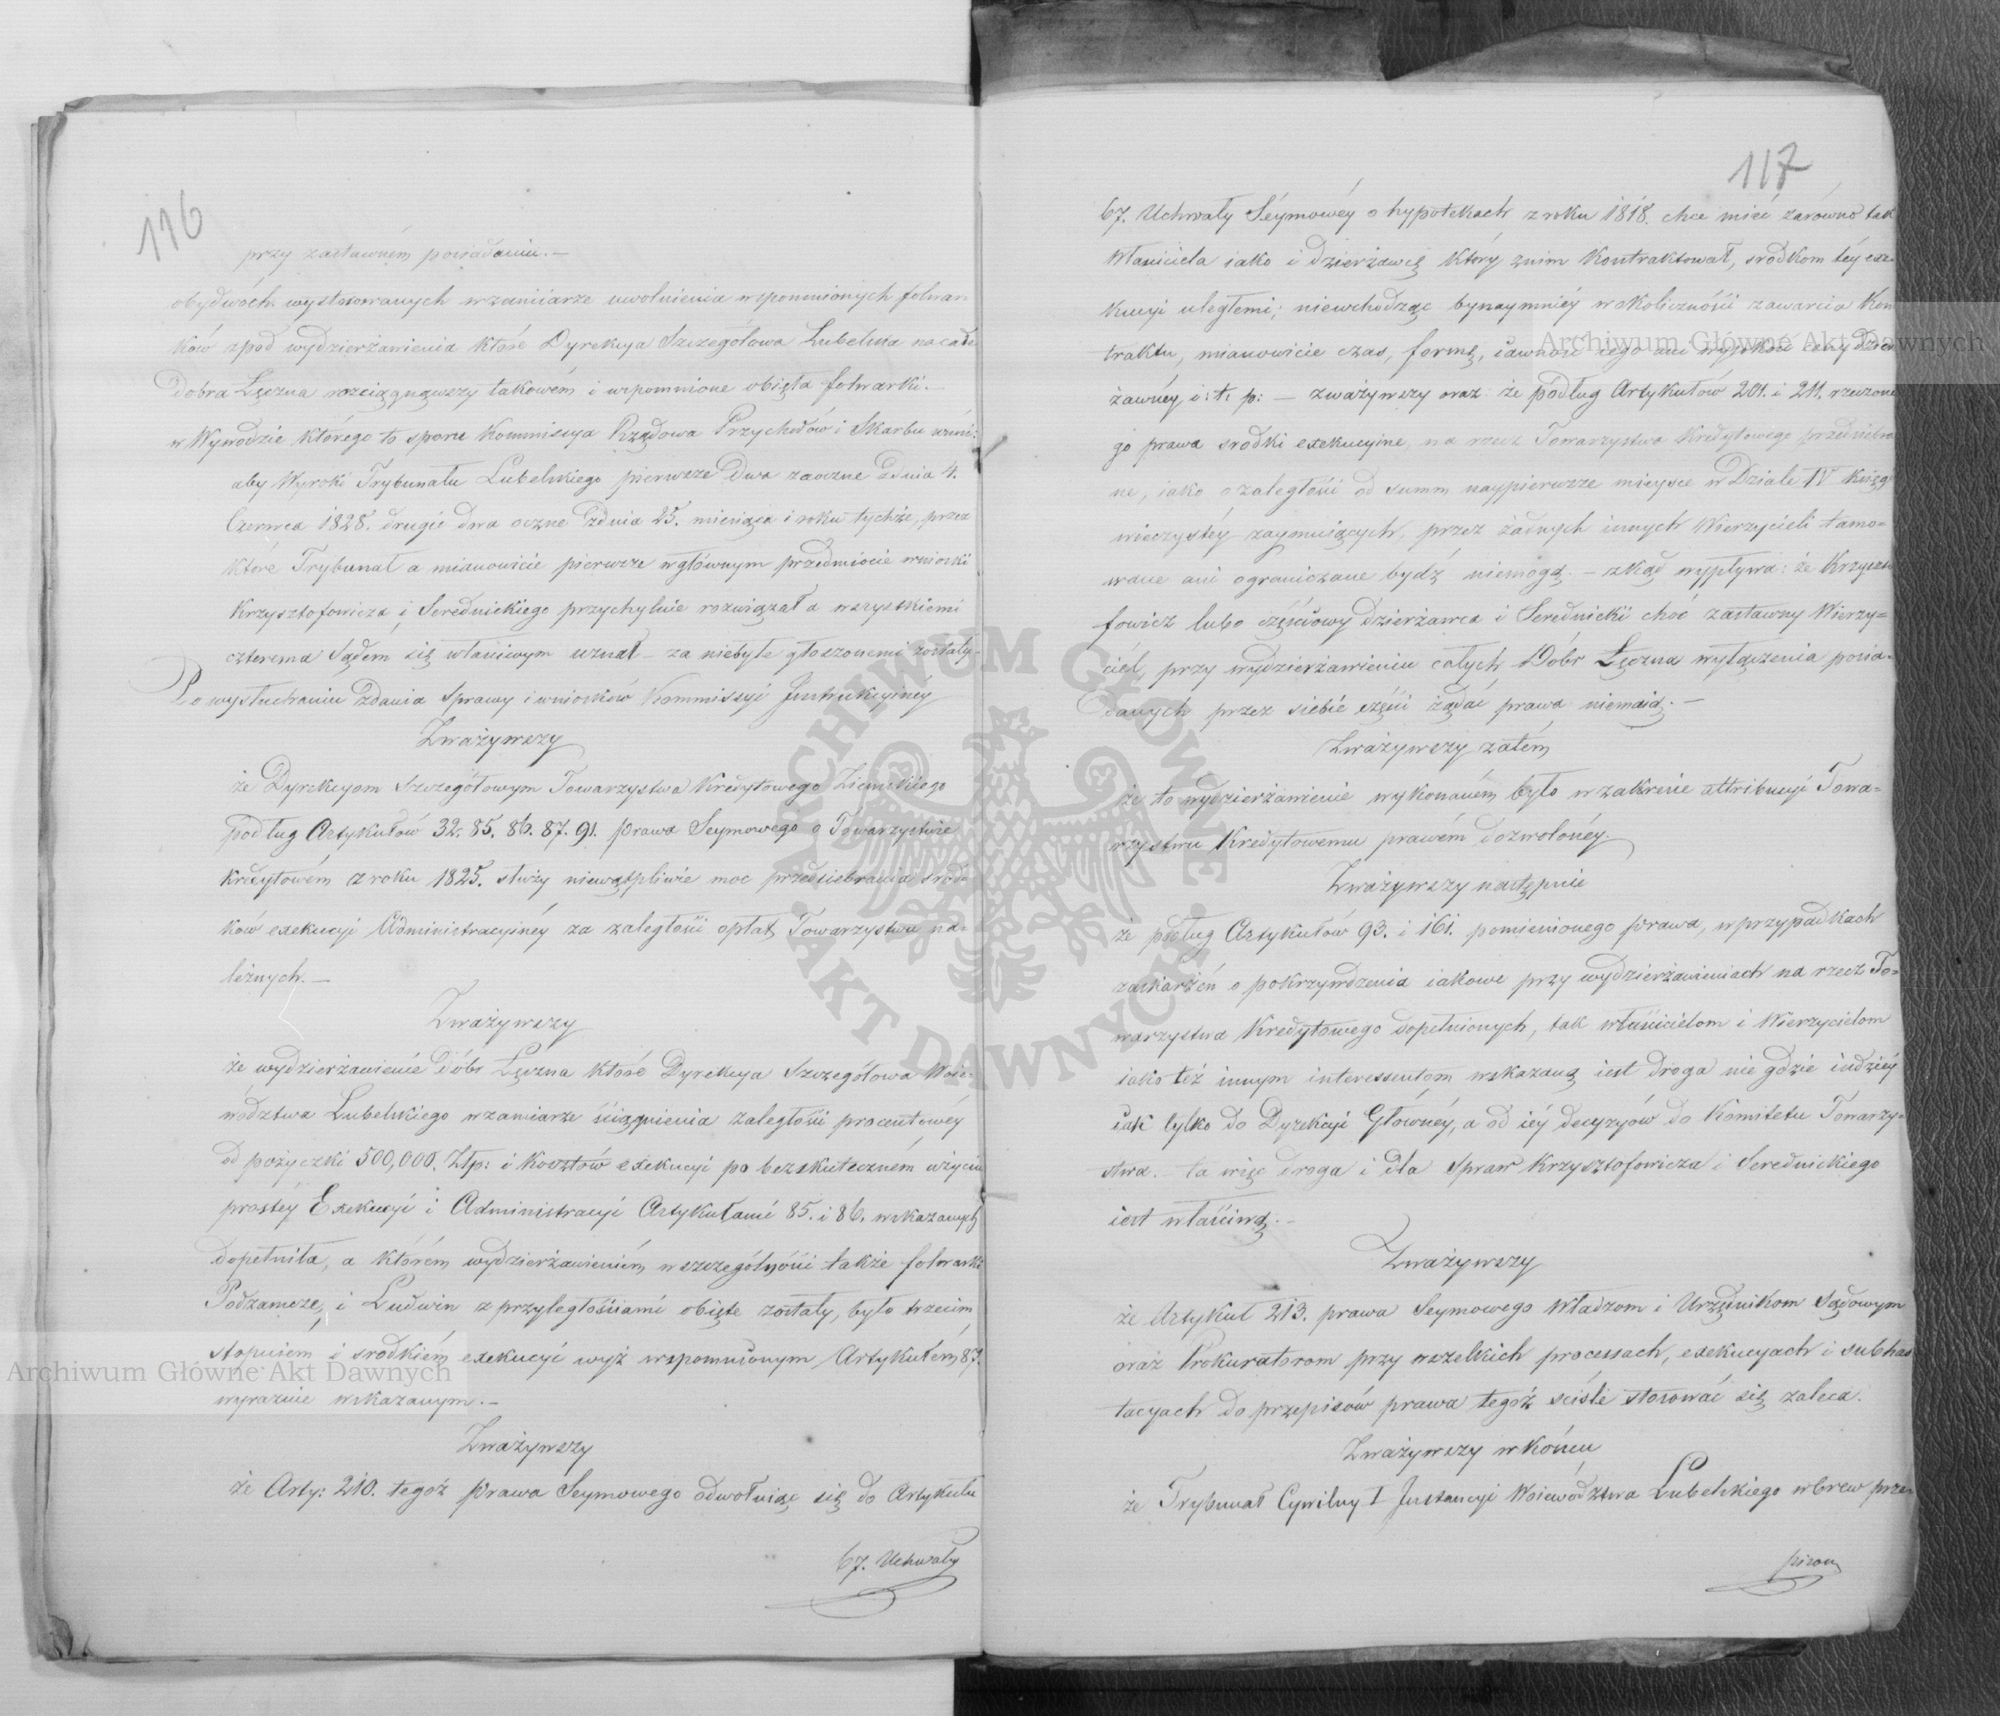 116
przy zastawném posiadaniu. —
obydwóch wystosowanych w zamiarze uwolnienia wspomnionych folwar-
ków z pod wydzierżawienia które Dyrekcya Szczegółowa Lubelska na całe
Dobra Łęczna rozciągnąwszy takowém i wspomnione obięła folwarki. —
w Wywodzie którego to sporu Kommissya Rządowa Przychodów i Skarbu wnosi:
aby Wyroki Trybunału Lubelskiego pierwsze dwa zaoczne z dnia 4.
Czerwca 1828. drugie dwa oczne z dnia 25. miesiąca i roku tychże, przez
które Trybunał a mianowicie pierwsze w głównym przedmiocie wnioski
Krzysztofowicza i Serednickiego przychylnie rozwiązał a wszystkiemi
czterema Sądem się właściwym uznał — za niebyłe głoszonemi zostały.
Po wysłuchaniu zdania Sprawy i wniosków Kommissyi Instrukcyinéy
Zważywszy
że Dyrekcyom Szczegółowym Towarzystwa Kredytowego Ziemskiego
podług Artykułów 32. 85. 86. 87. 91. prawa Seymowego o Towarzystwie
kredytowém z roku 1825. służy niewątpliwie moc przedsiebrania środ-
ków exekucyi Administracyinéy za zaległości opłat Towarzystwu na-
leżnych. —
Zważywszy
że wydzierżawienie Dóbr Łęczna które Dyrekcya Szczegółowa Woie-
wództwa Lubelskiego w zamiarze ściągnienia zaległości procentowéy
od pożyczki 500,000. Złp: i kosztów exekucyi po bezskuteczném użyciu
prostéy Exekucyi i Administracyi Artykułami 85. i 86. wskazanych
dopełniła, a którém wydzierżawieniem w szczególności także folwarki
Podzamcze i Ludwin z przyległościami obięte zostały, było trzecim
stopniem i srodkiém exekucyi wyż wspomnionym Artykułem 87.
wyraźnie wskazanym. —
Zważywszy
że Arty: 210. tegoż prawa Seymowego odwołuiąc się do Artykułu
67. Uchwały
117
67. Uchwały Séymowéy o hypotekach z roku 1818. chce mieć zarówno tak
Właściciela iako i dzierżawcę który z nim kontraktował, srodkom téy exe-
kucyi uległemi; niewchodząc bynaymniéy w okoliczności zawarcia Kon-
traktu, mianowicie czas, formę, iawność iego ani wysokość ceny dzier-
żawnéy i: t: p: — zważywszy oraz że podług Artykułów 201. i 211. rzeczone-
go prawa srodki exekucyine, na rzecz Towarzystwa Kredytowego przedsiebra-
ne, iako o zaległości od summ naypierwsze mieysce w Dziale IV Księgi
wieczystéy zaymuiących, przez żadnych innych Wierzycieli tamo-
wane ani ograniczane bydź niemogą. — zkąd wypływa: że Krzyszto-
fowicz lubo częściowy dzierżawca i Serednicki choć zastawny Wierzy-
ciel, przy wydzierżawieniu całych Dóbr Łęczna wyłączenia posia-
danych przez siebie części żądać prawa niemaią. —
Zważywszy zatém
że to wydzierżawienie wykonaném było w zakresie attribucyi Towa-
rzystwu Kredytowemu prawém dozwolonéy.
Zważywszy następnie
że podług Artykułów 93. i 161. pomienionego prawa, w przypadkach
zaskarżeń o pokrzywdzenia iakowe przy wydzierżawieniach na rzecz To-
warzystwa Kredytowego dopełnionych, tak właścicielom i Wierzycielom
iako też innym interessentom wskazaną iest droga nie gdzie indziéy
iak tylko do Dyrekcyi Głównéy, a od iéy decyzyów do Komitetu Towarzy-
stwa. — ta więc droga i dla Spraw Krzysztofowicza i Serednickiego
iest właściwą. —
Zważywszy
że Artykuł 213. prawa Seymowego Władzom i Urzędnikom Sądowym
oraz Prokuratorom przy wszelkich processach, exekucyach i subhas-
tacyach do przepisów prawa tegoż ściśle stosować się zaleca.
Zważywszy w końcu
że Trybunał Cywilny I Instancyi Woiewództwa Lubelskiego wbrew prze-
pisom
Archiwum Główne Akt Dawnych
Archiwum Główne Akt Dawnych
ARCHIWUM GŁÓWNE AKT DAWNYCH